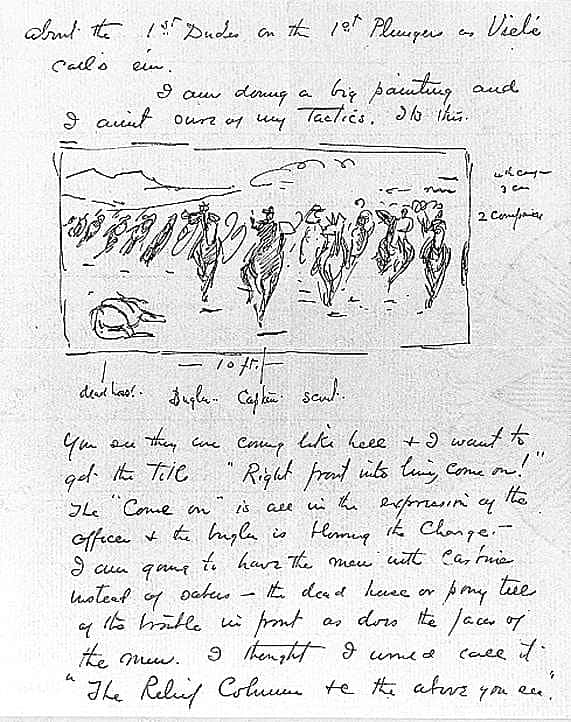 about the 1st Dudes or the 1st Plungers as Vielé
calls em.
I am doing a big painting and
I aint sure of my Tactics. Its this.
2 Companies
10 ft.
dead horse. Bugler. Captain. scout.
You see they are coming like hell + I want to
get the Title "Right front into line, Come on!"
The "Come on" is all in the expression of the
officer + the bugler is blowing the Charge.-
I am going to have the men with Carbine
instead of sabers - the dead horse or pony tell
of the trouble in front as does the faces of
the men. I thought I would call it
"The Relief Column +c the above you see".